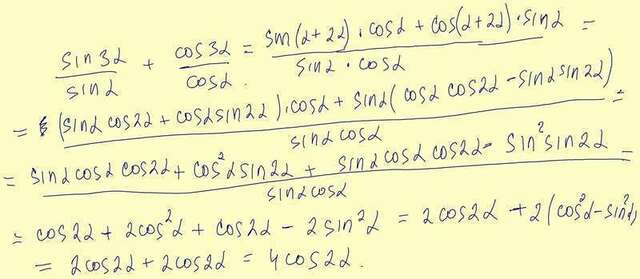 sin3α/sinα + cos3α/cosα = (sin(α+2α)·cosα + cos(α+2α)·sinα)/(sinα·cosα) =
= ((sinα cos2α + cosα sin2α)·cosα + sinα(cosα cos2α - sinα sin2α))/(sinα cosα) =
= (sinα cosα cos2α + cos²α sin2α + sinα cosα cos2α - sin² sin2α)/(sinα cosα) =
= cos2α + 2cos²α + cos2α - 2sin²α = 2cos2α + 2(cos²α - sin²α)
= 2cos2α + 2cos2α = 4cos2α.